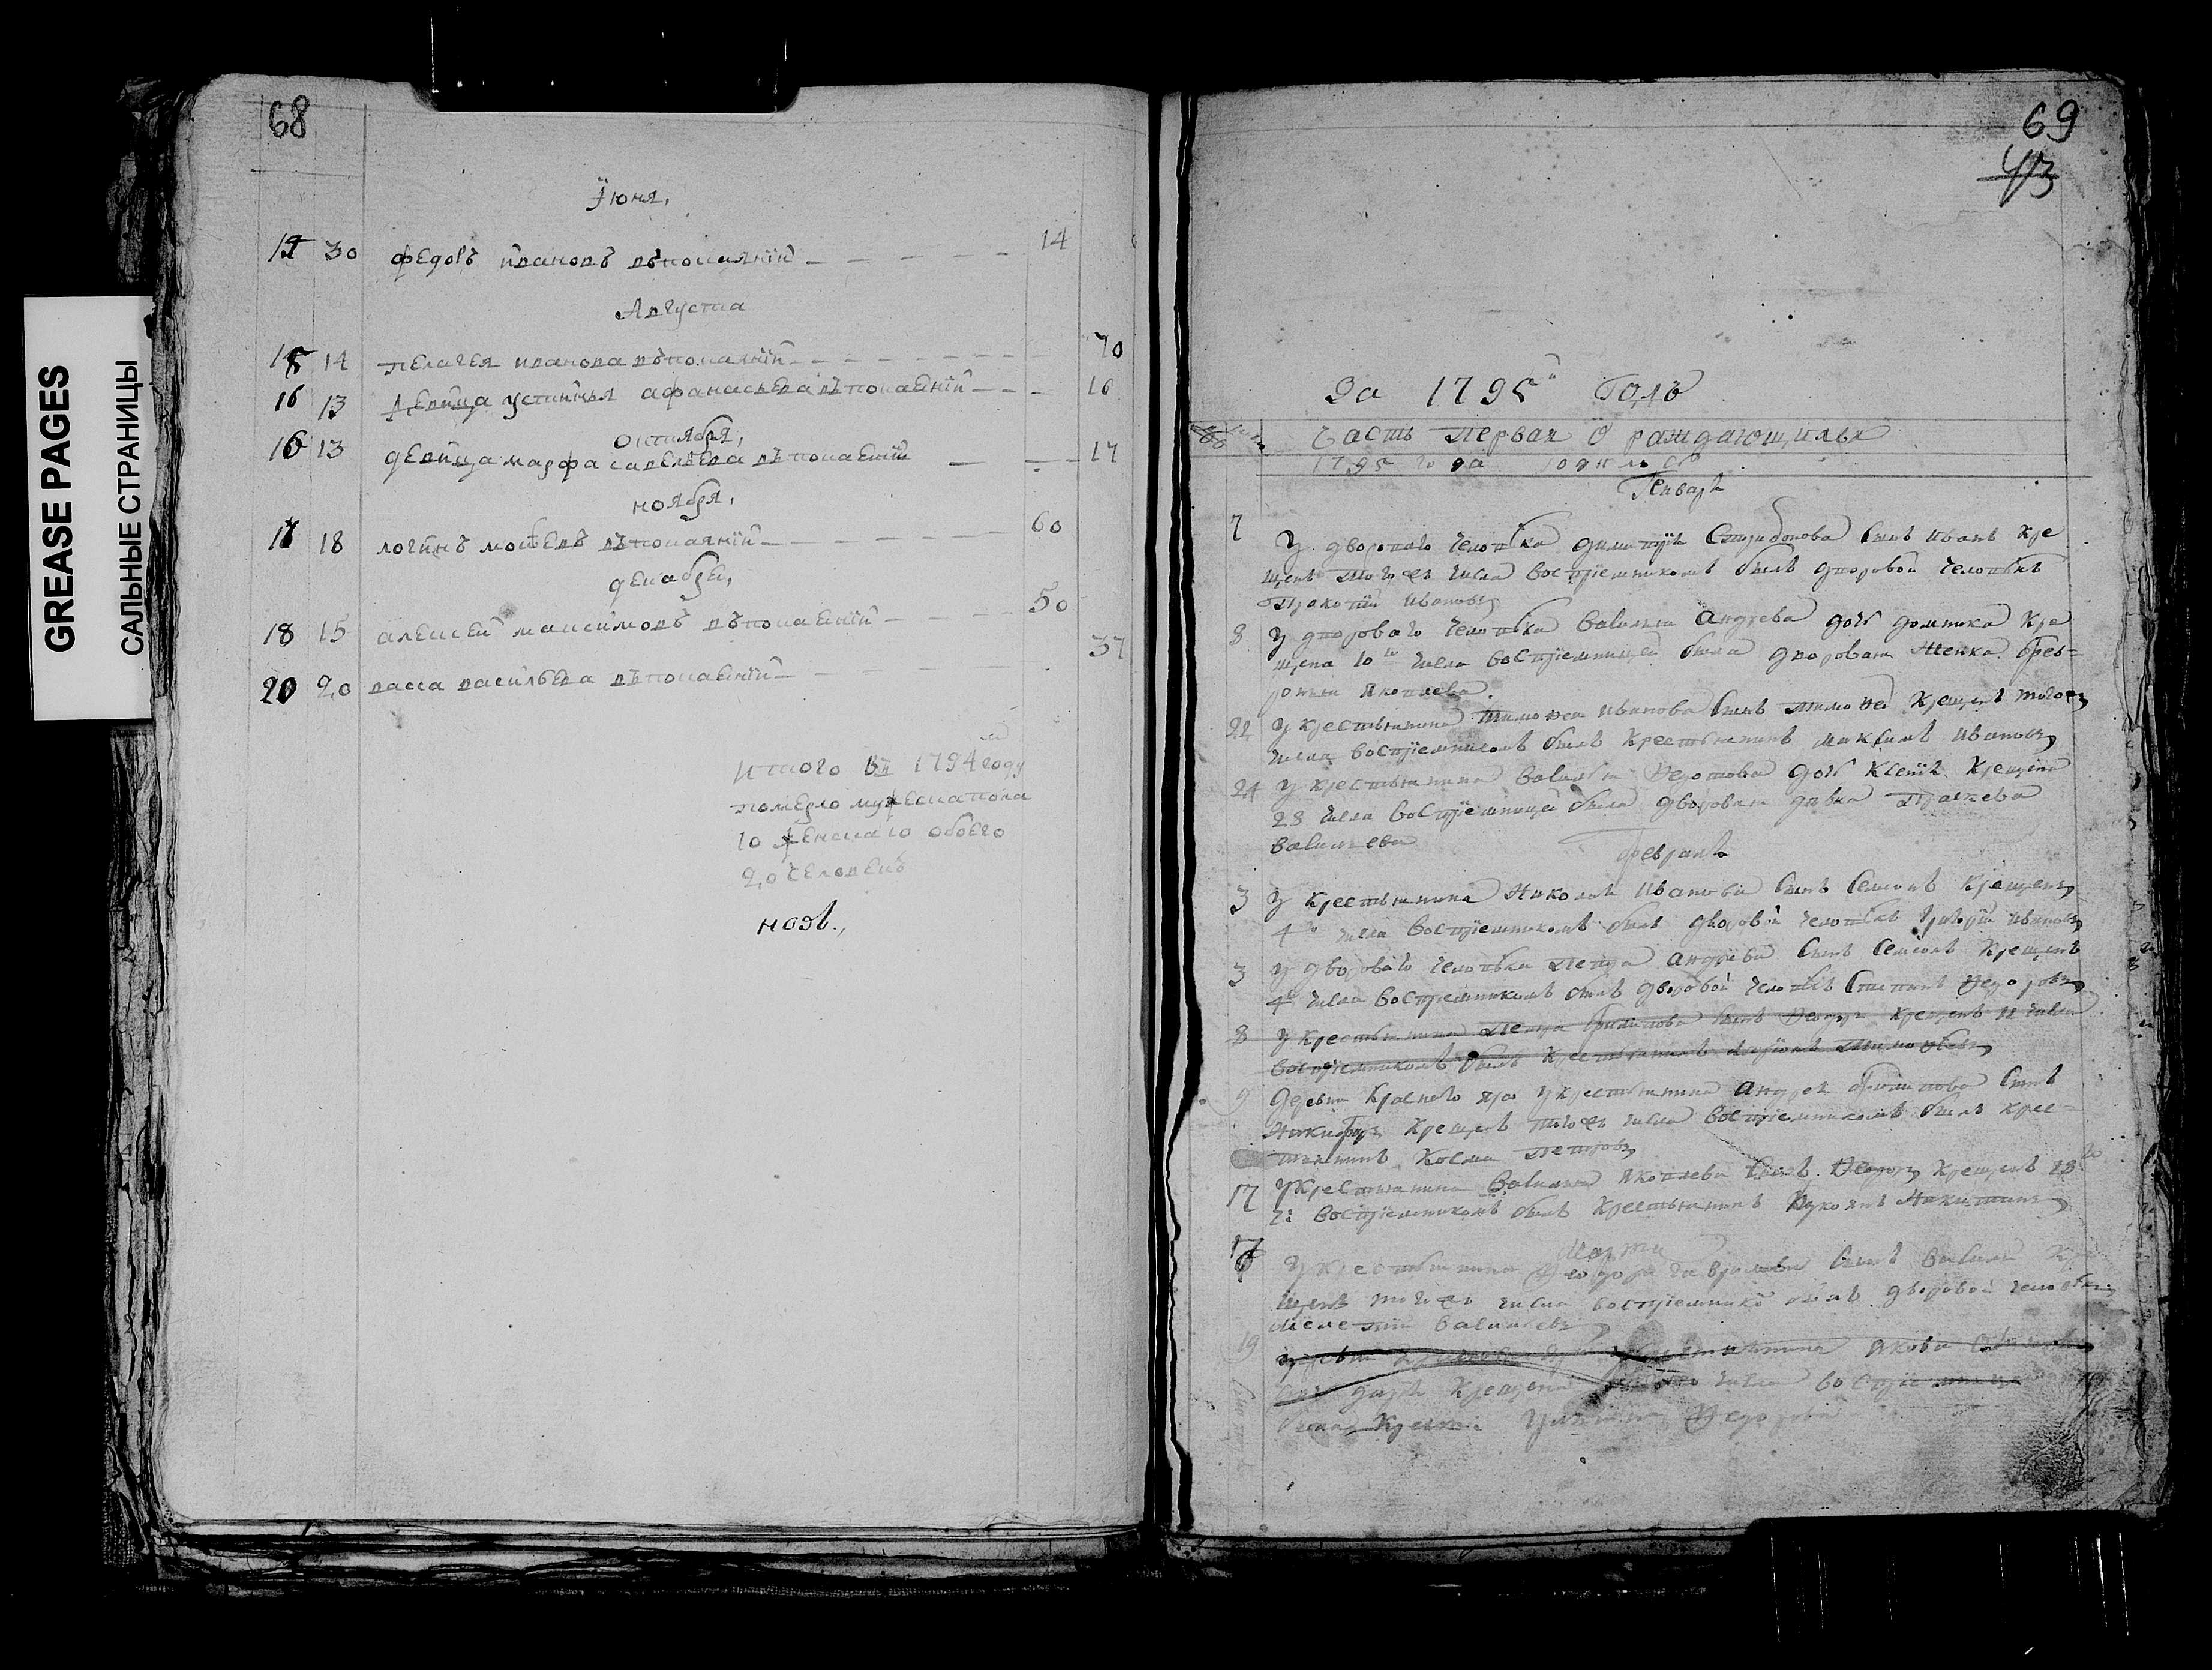 GREASE PAGES
САЛЬНЫЕ СТРАНИЦЫ
68
Їюня,
30 федоръ ивановъ въпокаянїи 14
Августа
14 пелагея иванова въпокаянїи 70
16 13 девица устинья афанасьева въпокаенїи 16
октября,
16 13 девица марфа савельева въпокаенїи 17
ноября,
18 логинъ мосеевъ въпокаянїи 60
декабря,
18 15 алексей максимовъ въпокаенїи 50
20 20 васса васильева въпокаенїи 37
Итого въ 1794 году
померло мужеска пола
10 женскаго обоего
20 человекъ
69
За 1795й Годъ
Часть первая о раждающихся
1795 года
Генваря
7 У двороваго человѣка димитрїя сынъ иванъ кре
щенъ тогожъ числа воспрїемникомъ былъ дворовой человѣкъ
Прокопїй Ивановъ
8 У двороваго человѣка Василья Андреева дочь домника кре
щена 10го числа воспрїемницей была дворовая женка
Яковлева.
22 У крестьянина Тимоѳея Иванова сынъ тимоѳей крещенъ тогожъ
числа воспрїемникомъ былъ крестьянинъ Максимъ Ивановъ
24 У крестьянина Василья Ѳедотова дочь Ксенїя крещена
28 числа воспрїемницей была дворовая дѣвка Праскева
Васильева
Февраля
3 У крестьянина Николая Иванова сынъ Семионъ крещенъ
4го числа воспрїемникомъ былъ дворовой человѣкъ Григорїй Ивановъ
3 У двороваго человѣка Петра Андреева сынъ Семионъ крещенъ
4 числа воспрїемникомъ былъ дворовой человѣкъ Степанъ Ѳедоровъ
8 У крестьянина Петра Филипова сынъ Ѳедоръ крещенъ 11 числа
воспрїемникомъ былъ крестьянинъ Тимоѳеевъ
9 Деревни Краснаго яра у крестьянина Андрея Филипова сынъ
Никифоръ крещенъ тогожъ числа воспрїемникомъ былъ крес=
тьянинъ Косма Петровъ
17 У Крестьянина Василья Яковлева сынъ Ѳедоръ крещенъ 18го
ч: воспрїемникомъ былъ крестьянинъ Лукоянъ Никитинъ
Марта
У крестьянина Ѳедора Гаврилова сынъ Василей кре
щенъ тогожъ числа воспрїемникомъ былъ дворовой человѣкъ
Мелетїй Васильевъ
19 Якова
дарья крещена числа воспрїемница
была Крестьян Ѳедорова